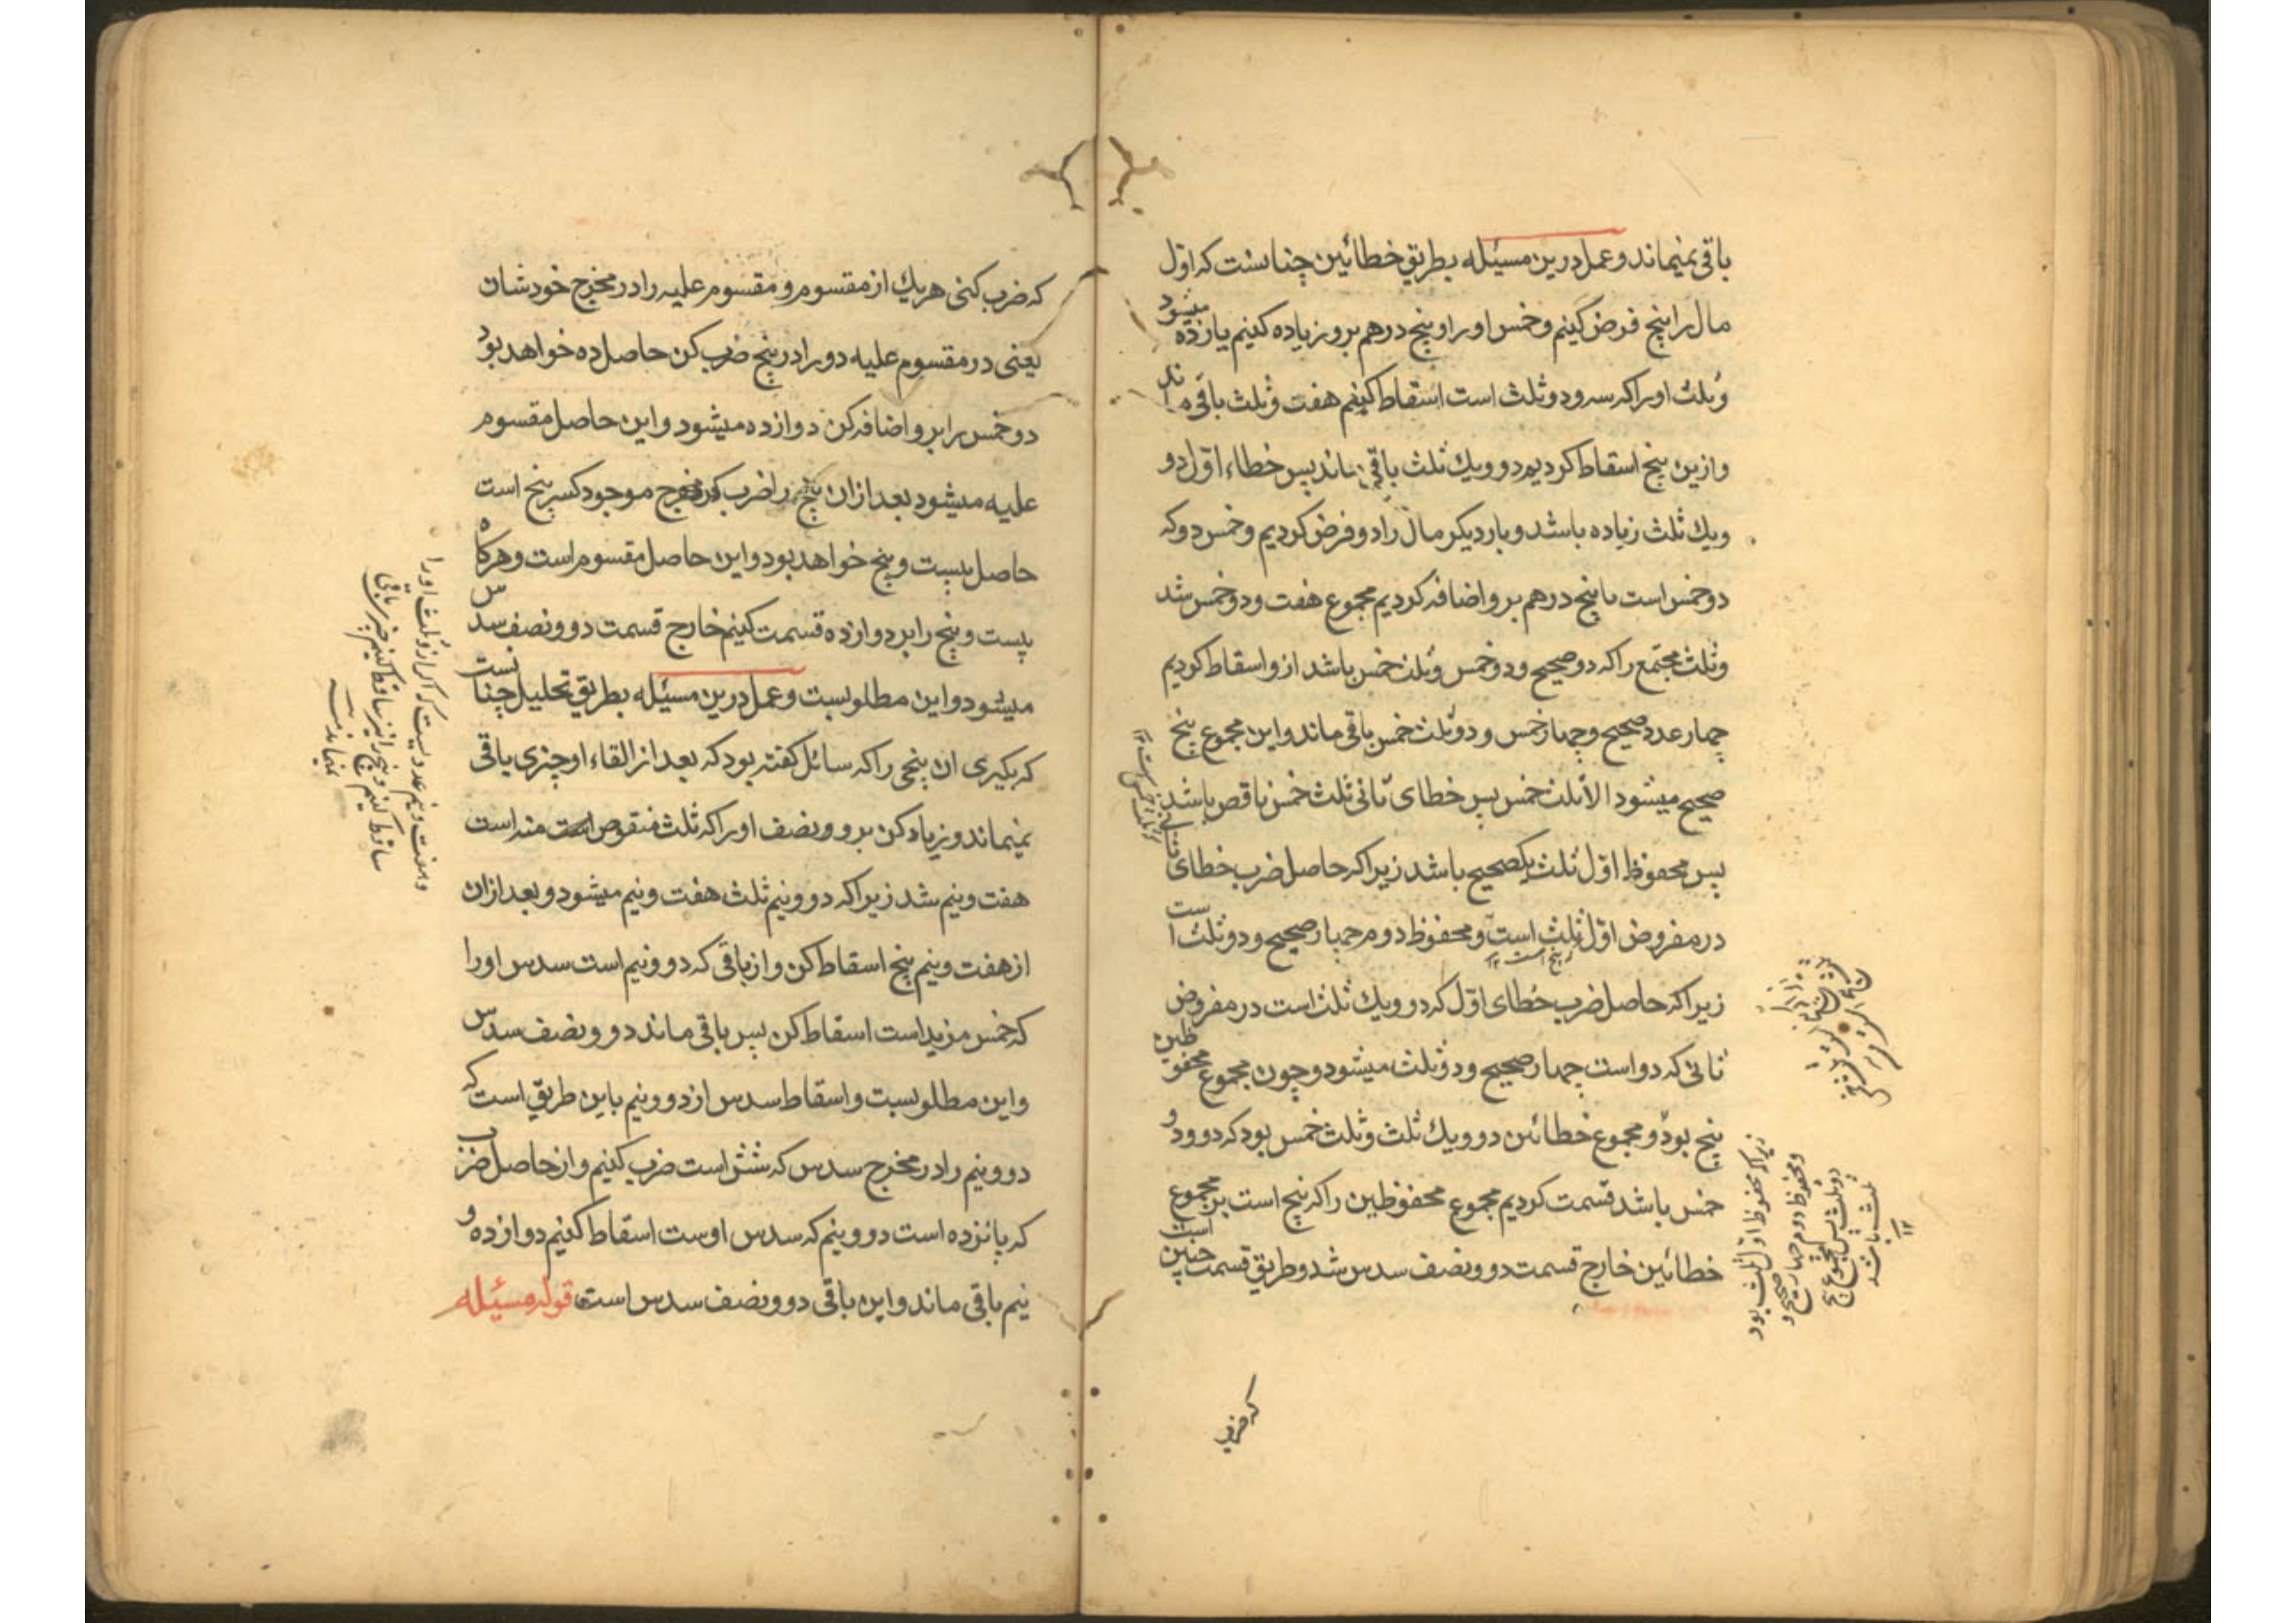 باقی نمیماند و عمل درین مسئله بطریق خطائین چنانست که اوّل
مال را پنج فرض کنیم و خمس او را و پنج درهم برو زیاده کنیم یازده میشود
و ثلث او را که سه و دو ثلث است اسقاط کنیم هفت و ثلث باقی ماند
و ازین پنج اسقاط کردیم دو و یك ثلث باقی ماند پس خطاء اوّل دو
و یك ثلث زیاده باشد و بار دیکر مال را دو فرض کردیم و خمس دو که
دو خمس است با پنج درهم برو اضافه کردیم مجموع هفت و دو خمس شد
و ثلث مجتمع را که دو صحیح و دو خمس و ثلث خمس باشد ازو اسقاط کردیم
چهار عدد صحیح و چهار خمس و دو ثلث خمس باقی ماند و این مجموع پنج
صحیح میشود الا ثلث خمس پس خطای ثانی ثلث خمس ناقص باشد
پس محفوظ اوّل ثلث یکصحیح باشد زیرا که حاصل ضرب خطای ثانی
در مفروض اوّل ثلث است و محفوظ دوم چهار صحیح و دو ثلث است
که پنج است ۱۲
زیرا که حاصل ضرب خطای اوّل که دو و یك ثلث است در مفروض
ثانی که دو است چهار صحیح و دو ثلث میشود و چون مجموع محفوظین
پنج بود و مجموع خطائین دو و یك ثلث و ثلث خمس بود که دو و دو
خمس باشد قسمت کردیم مجموع محفوظین را که پنج است بر مجموع
خطائین خارج قسمت دو و نصف سدس شد و طریق قسمت چنین است
زیرا که محفوظ اول ثلث بود
و محفوظ دوم چهار صحیح و
دو ثلث پس مجموع پنج
ثلث باشد
۱۲
که ضرب
که ضرب کنی هریك از مقسوم و مقسوم علیه را در مخرج خودشان
یعنی در مقسوم علیه دو را در پنج ضرب کن حاصل ده خواهد بود
دو خمس را برو اضافه کن دوازده میشود و این حاصل مقسوم
علیه میشود بعد از ان پنج را ضرب کن در مخرج موجود کسر پنج است
حاصل بیست و پنج خواهد بود و این حاصل مقسوم است و هرکاه
بیست و پنج را بر دوازده قسمت کنیم خارج قسمت دو و نصف سدس
میشود و این مطلوبست و عمل درین مسئله بطریق تحلیل چنانست
که بکیری ان پنجی را که سائل کفته بود که بعد از القاء او چیزی باقی
نمیماند و زیاد کن برو و نصف او را که ثلث منقوص منه است
هفت و نیم شد زیرا که دو و نیم ثلث هفت و نیم میشود و بعد از ان
از هفت و نیم پنج اسقاط کن و از باقی که دو و نیم است سدس او را
که خمس مزید است اسقاط کن پس باقی ماند دو و نصف سدس
و این مطلوبست و اسقاط سدس از دو و نیم باین طریق است که
دو و نیم را در مخرج سدس که شش است ضرب کنیم و از حاصل ضرب
که پانزده است دو و نیم که سدس اوست اسقاط کنیم دوازده و
نیم باقی ماند و این باقی دو و نصف سدس است قوله مسئله
و هفت و نیم عددیست که اکر از و ثلث او را
ساقط کنیم و پنج را نیز ساقط کنیم چیزی باقی
نمیماند